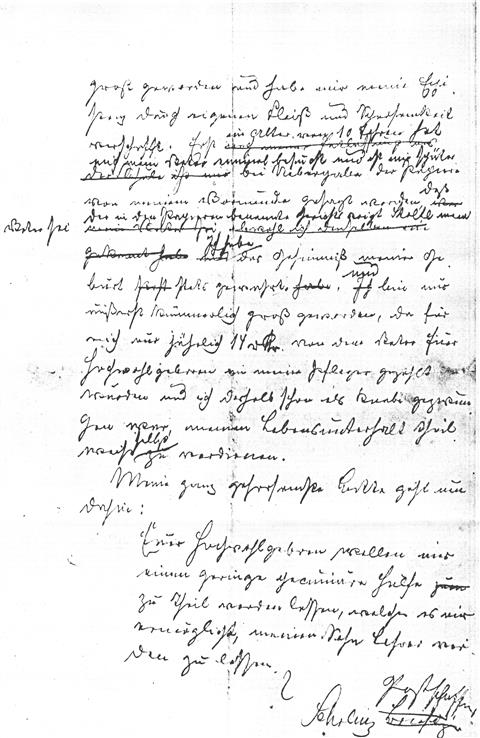 groß geworden und habe mir meine Exi-
stenz durch eigenen Fleiß und Sparsamkeit
verschafft. Erst
im Alter von 10 Jahren hat
mich mein Vater einmal besucht und ist mir später
bei Uebergabe der Papiere
von meinem Vormunde gesagt worden daß
der in den Papieren benannte Stolle mein
Vater sei
ich habe
das Geheimniß meiner Ge-
burt stets gewahrt habe. Ich und bin nur
äußerst kümmerlich groß geworden, da für
mich nur jährlich 14 von dem Vater Euer
Hochwohlgeboren an meine Pfleger gezahlt
wurden und ich deshalb schon als Knabe gezwun-
gen war, meinen Lebensunterhalt theil-
weise selbst zu verdienen.
Meine ganz gehorsamste Bitte geht nun
dahin:
Euer Hochwohlgeboren wollen mir
eine geringe pecuniäre Hülfe zum
zu Theil werden lassen, welche es mir
ermöglicht, meinen Sohn Lehrer wer-
den zu lassen.
Postschaffner